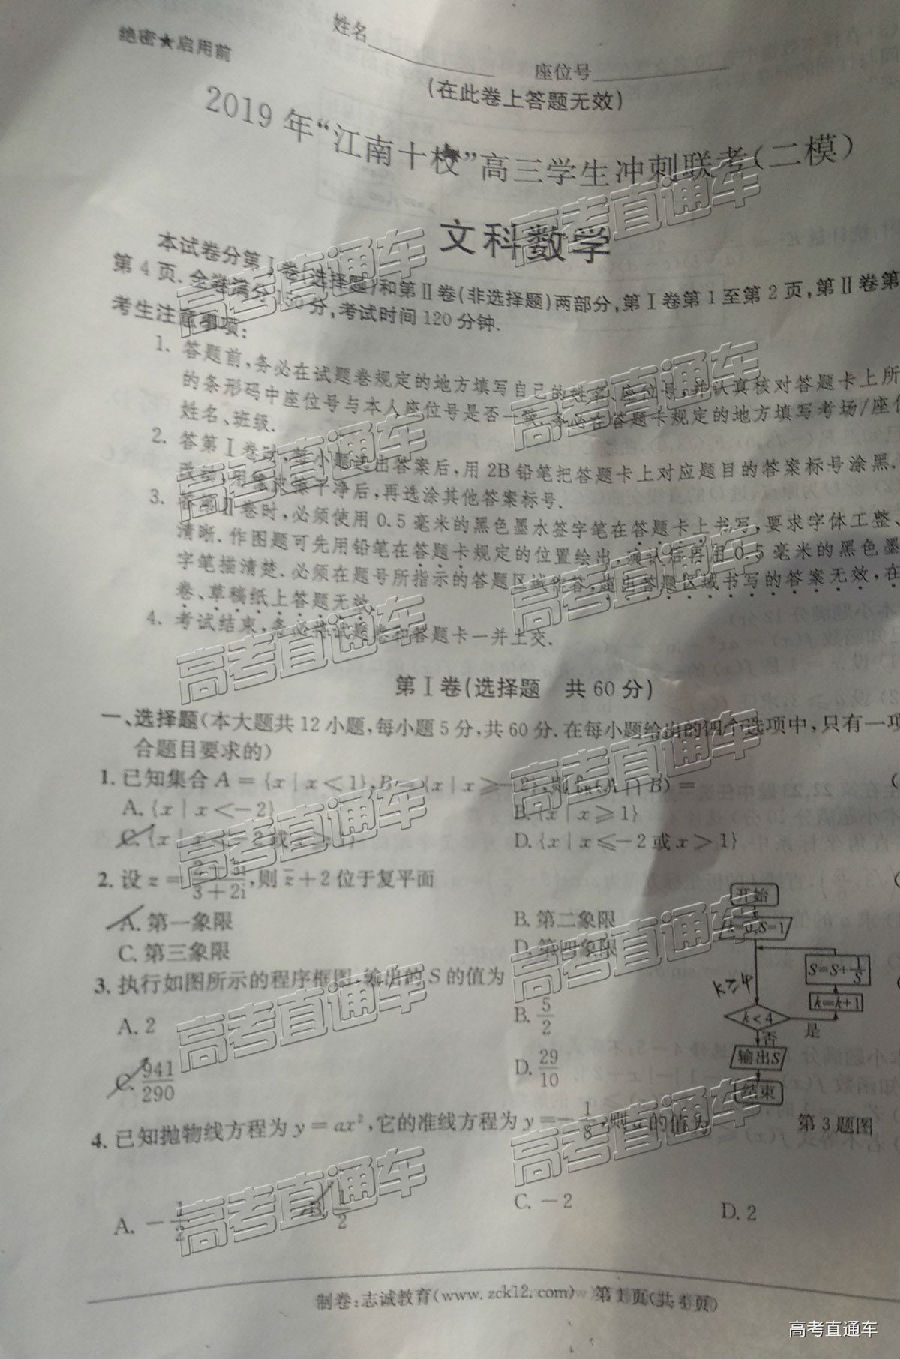 绝密★启用前
姓名
座位号
(在此卷上答题无效)
2019年“江南十校”高三学生冲刺联考(二模)
文科数学
本试卷分第Ⅰ卷(选择题)和第Ⅱ卷(非选择题)两部分,第Ⅰ卷第1至第2页,第Ⅱ卷第
第4页.全卷满分150分,考试时间120分钟.
考生注意事项:
1. 答题前,务必在试题卷规定的地方填写自己的姓名、座位号,并认真核对答题卡上所
的条形码中座位号与本人座位号是否一致.务必在答题卡规定的地方填写考场/座位
姓名、班级.
2. 答第Ⅰ卷时,每小题选出答案后,用2B铅笔把答题卡上对应题目的答案标号涂黑.
改动,用橡皮擦干净后,再选涂其他答案标号.
3. 答第Ⅱ卷时,必须使用0.5毫米的黑色墨水签字笔在答题卡上书写,要求字体工整、
清晰.作图题可先用铅笔在答题卡规定的位置绘出,确认后再用0.5毫米的黑色墨
字笔描清楚.必须在题号所指示的答题区域作答,超出答题区域书写的答案无效,在
卷、草稿纸上答题无效.
4. 考试结束,务必将试题卷和答题卡一并上交.
第Ⅰ卷(选择题 共60分)
一、选择题(本大题共12小题,每小题5分,共60分.在每小题给出的四个选项中,只有一项
合题目要求的)
1. 已知集合A={x|x<1},B={x|x≥-2},则 (A∩B)=
A. {x|x<-2}
B. {x|x≥1}
C. {x|x<-2或x≥1}
D. {x|x≤-2或x>1}
2. 设z= /3+2i,则z̄+2位于复平面
A. 第一象限
B. 第二象限
C. 第三象限
D. 第四象限
3. 执行如图所示的程序框图,输出的S的值为
A. 2
B. 5/2
C. 941/290
D. 29/10
开始
k=0,S=1
S=S+1/S
k=k+1
k≥4
k<4
是
否
输出S
结束
第3题图
4. 已知抛物线方程为y=ax²,它的准线方程为y=-1/8,则a的值为
A. -1/2
B. 1/2
C. -2
D. 2
制卷:志诚教育(www.zck12.com) 第1页(共4页)
高考直通车
高考直通车
高考直通车
高考直通车
高考直通车
高考直通车
高考直通车
高考直通车
高考直通车
高考直通车
高考直通车
高考直通车
高考直通车